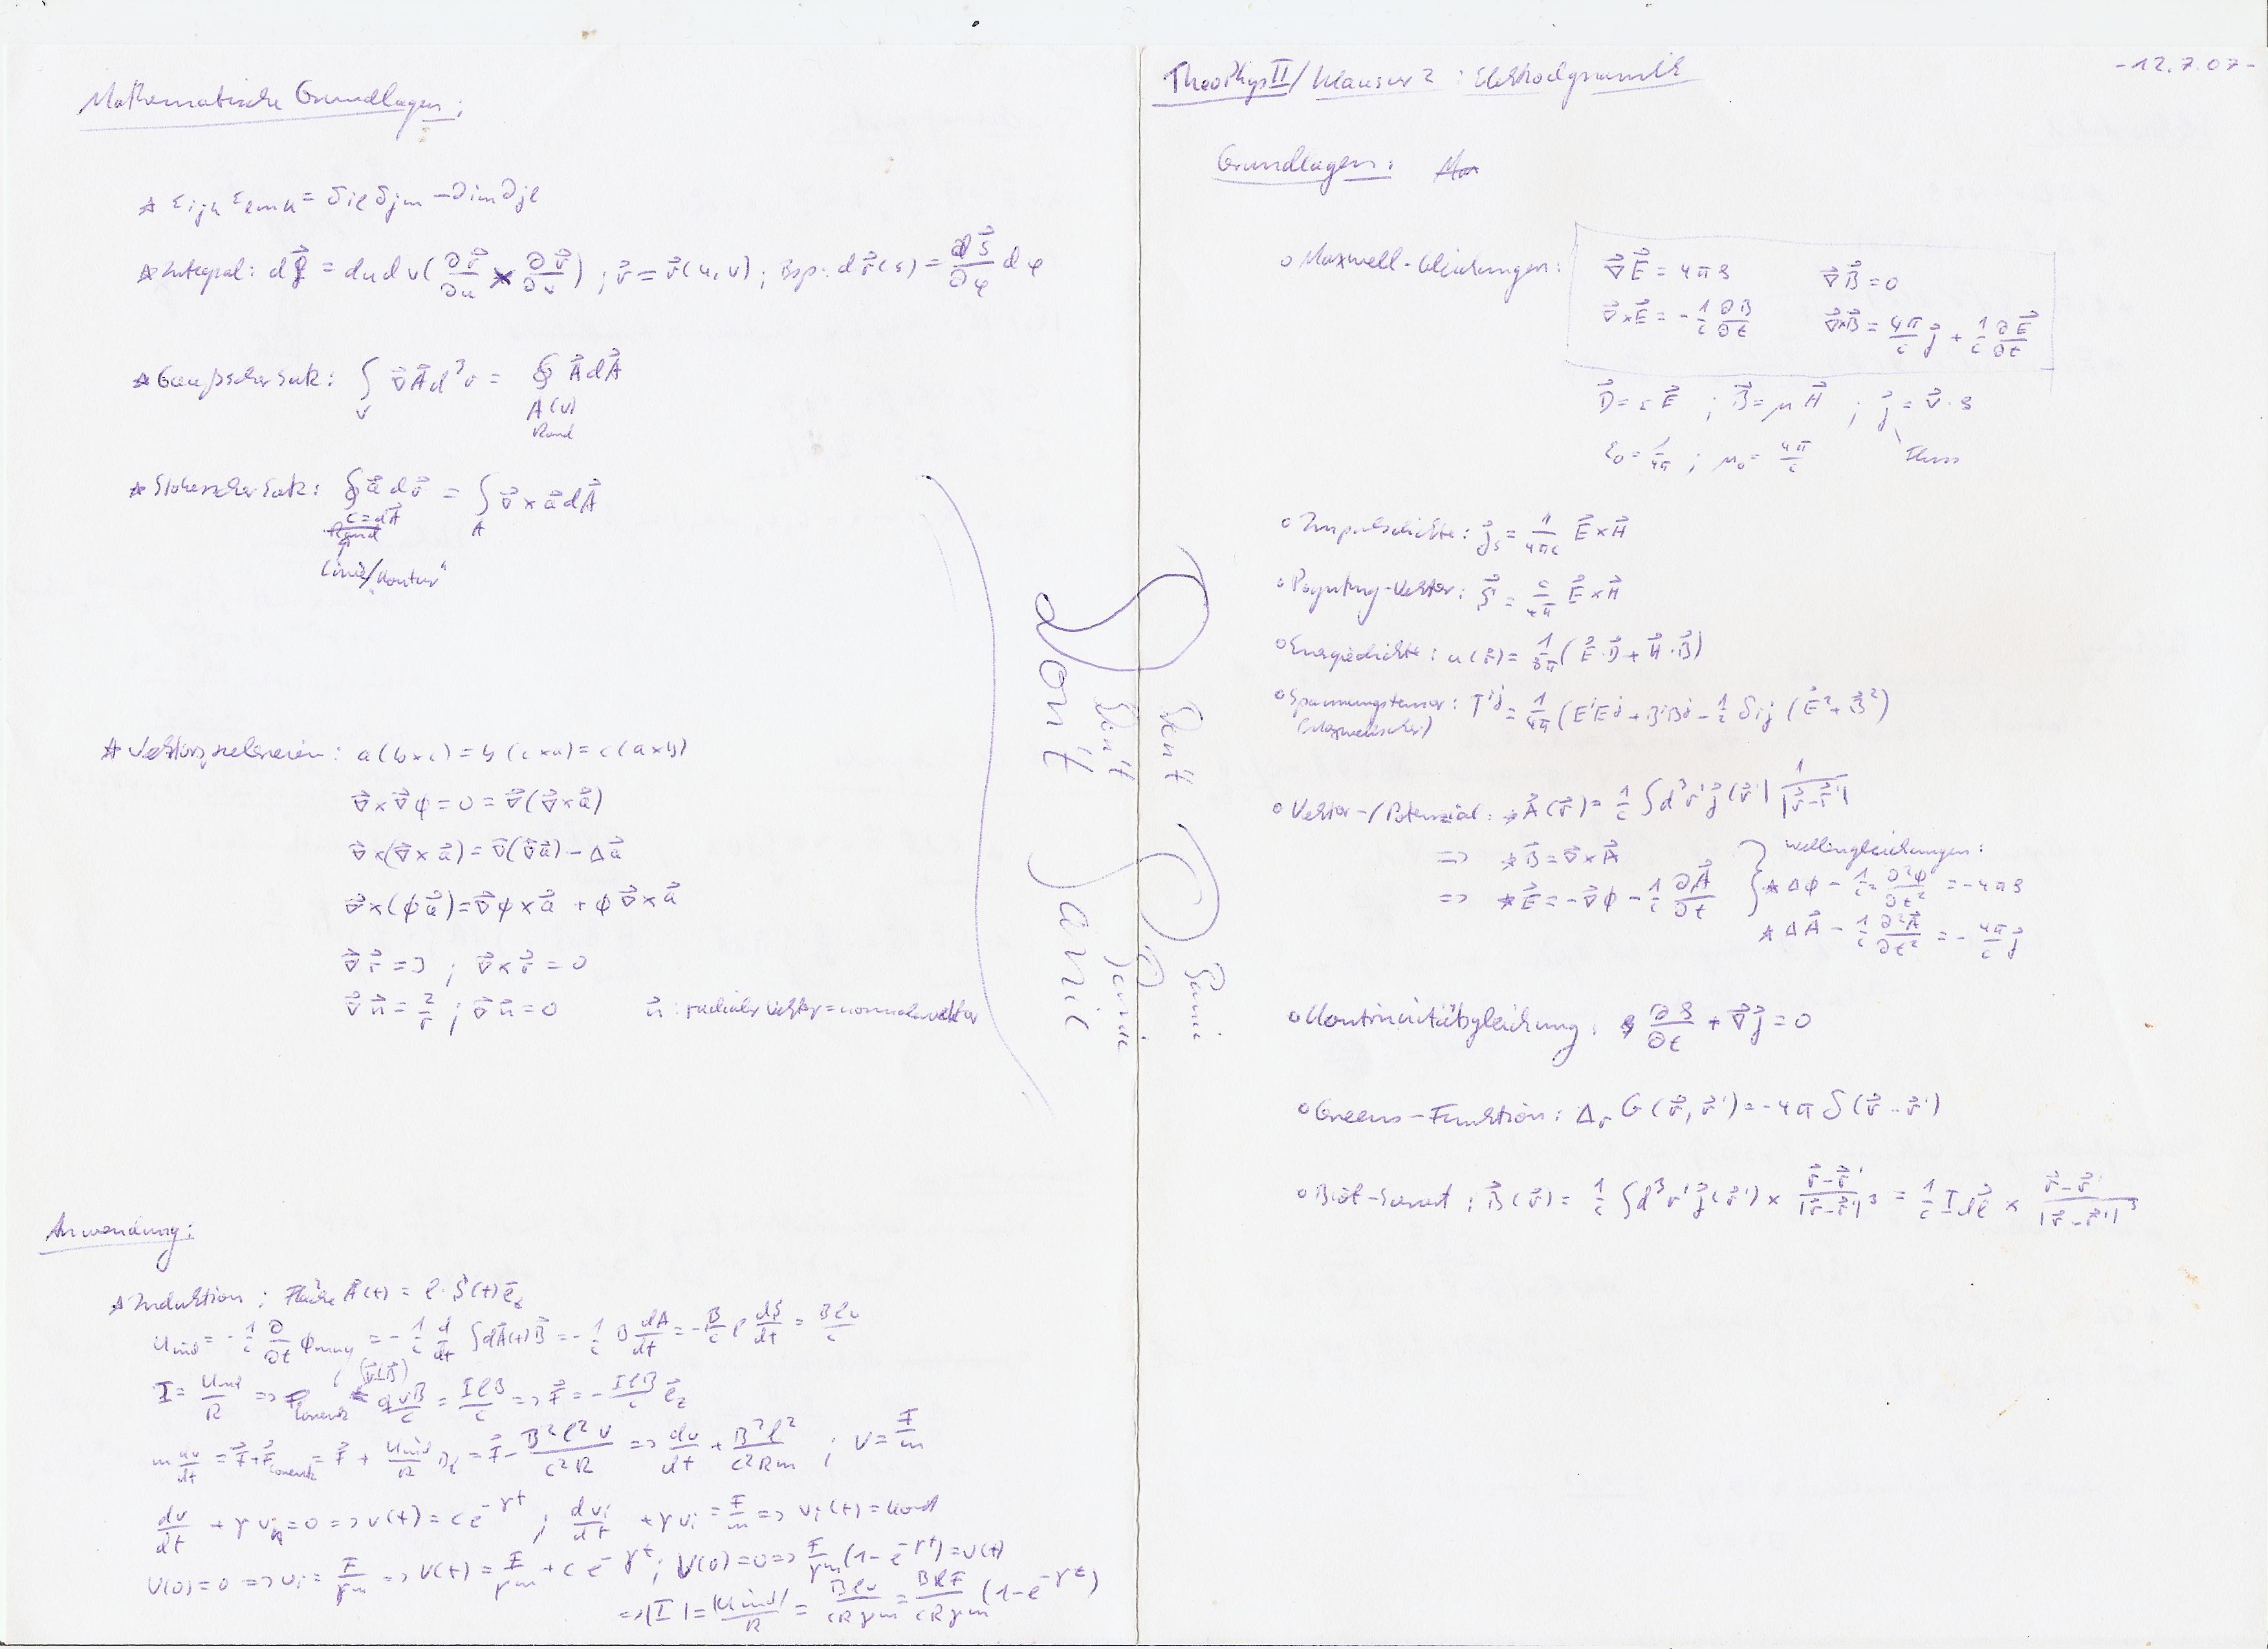 Mathematische Grundlagen:
* ε_ijk ε_lmk = δ_il δ_jm − δ_im δ_jl
* Integral: d = du dv (∂r⃗/∂u × ∂r⃗/∂v) ; r⃗ = r⃗(u,v) ; Bsp: dr⃗(s) = ∂s⃗/∂φ dφ
* Gaußscher Satz: ∫_V ∇⃗A⃗ d³r = ∮_A(V) A⃗ dA⃗
Rand
* Stokescher Satz: ∮ a⃗ dr⃗ = ∫_A ∇⃗ × a⃗ dA⃗
Rand
Linie/„Kontur“
* Vektorspielereien: a(b×c) = b(c×a) = c(a×b)
∇⃗×∇⃗φ = 0 = ∇⃗(∇⃗×a⃗)
∇⃗×(∇⃗×a⃗) = ∇⃗(∇⃗a⃗) − Δa⃗
∇⃗×(φa⃗) = ∇⃗φ×a⃗ + φ∇⃗×a⃗
∇⃗r⃗ = 3 ; ∇⃗×r⃗ = 0
∇⃗n⃗ = 2/r ; ∇⃗n⃗ = 0 n⃗: radialer Vektor = normalenvektor
Anwendung:
* Induktion ; Fläche A⃗(t) = l·S(t)e⃗_z
U_ind = −1/c ∂/∂t φ_mag = −1/c d/dt ∫dA⃗(t)B⃗ = −1/c B dA/dt = −B/c l dS/dt = Blv/c
(v⃗⊥B⃗)
I = U_ind/R => F_Lorentz = qvB/c = IlB/c => F⃗ = −IlB/c e⃗_z
m dv/dt = F⃗+F⃗_Lorentz = F⃗ + U_ind/R Bl = F⃗ − B²l²v/c²R => dv/dt + B²l²/c²Rm ; v = F/m
dv/dt + γv = 0 => v(t) = ce^−γt ; dv_i/dt + γv_i = F/m => v_i(t) = konst
v(0) = 0 => v_i = F/γm => v(t) = F/γm + ce^−γt ; v(0) = 0 => F/γm (1−e^−γt) = v(t)
=> |I| = |U_ind|/R = Blv/cRγm = BlF/cRγm (1−e^−γt)
Don't Panic
Don't Panic
Don't Panic
TheoPhys II / Klausur 2 : Elektrodynamik
-12.7.07-
Grundlagen:
o Maxwell-Gleichungen: ∇⃗E⃗ = 4πρ ∇⃗B⃗ = 0
∇⃗×E⃗ = −1/c ∂B/∂t ∇⃗×B⃗ = 4π/c j⃗ + 1/c ∂E⃗/∂t
D⃗ = εE⃗ ; B⃗ = μH⃗ ; j⃗ = v⃗·ρ
ε₀ = 1/4π ; μ₀ = 4π/c Fluss
o Impulsdichte: g⃗_s = 1/4πc E⃗×H⃗
o Poynting-Vektor: S⃗ = c/4π E⃗×H⃗
o Energiedichte: u(r⃗) = 1/8π (E⃗·D⃗ + H⃗·B⃗)
o Spannungstensor: T^ij = 1/4π (E^iE^j + B^iB^j − 1/2 δ_ij (E⃗² + B⃗²)
(Maxwellscher)
o Vektor-/Potenzial: * A⃗(r⃗) = 1/c ∫d³r' j⃗(r⃗') 1/|r⃗−r⃗'|
=> * B⃗ = ∇⃗×A⃗
=> * E⃗ = −∇⃗φ − 1/c ∂A⃗/∂t
Wellengleichungen:
* Δφ − 1/c² ∂²φ/∂t² = −4πρ
* ΔA⃗ − 1/c² ∂²A⃗/∂t² = −4π/c j⃗
o Kontinuitätsgleichung: ∂ρ/∂t + ∇⃗j⃗ = 0
o Greens-Funktion: Δ_r G(r⃗, r⃗') = −4π δ(r⃗−r⃗')
o Biot-Savart ; B⃗(r⃗) = 1/c ∫d³r' j⃗(r⃗') × r⃗−r⃗'/|r⃗−r⃗'|³ = 1/c I dl⃗ × r⃗−r⃗'/|r⃗−r⃗'|³